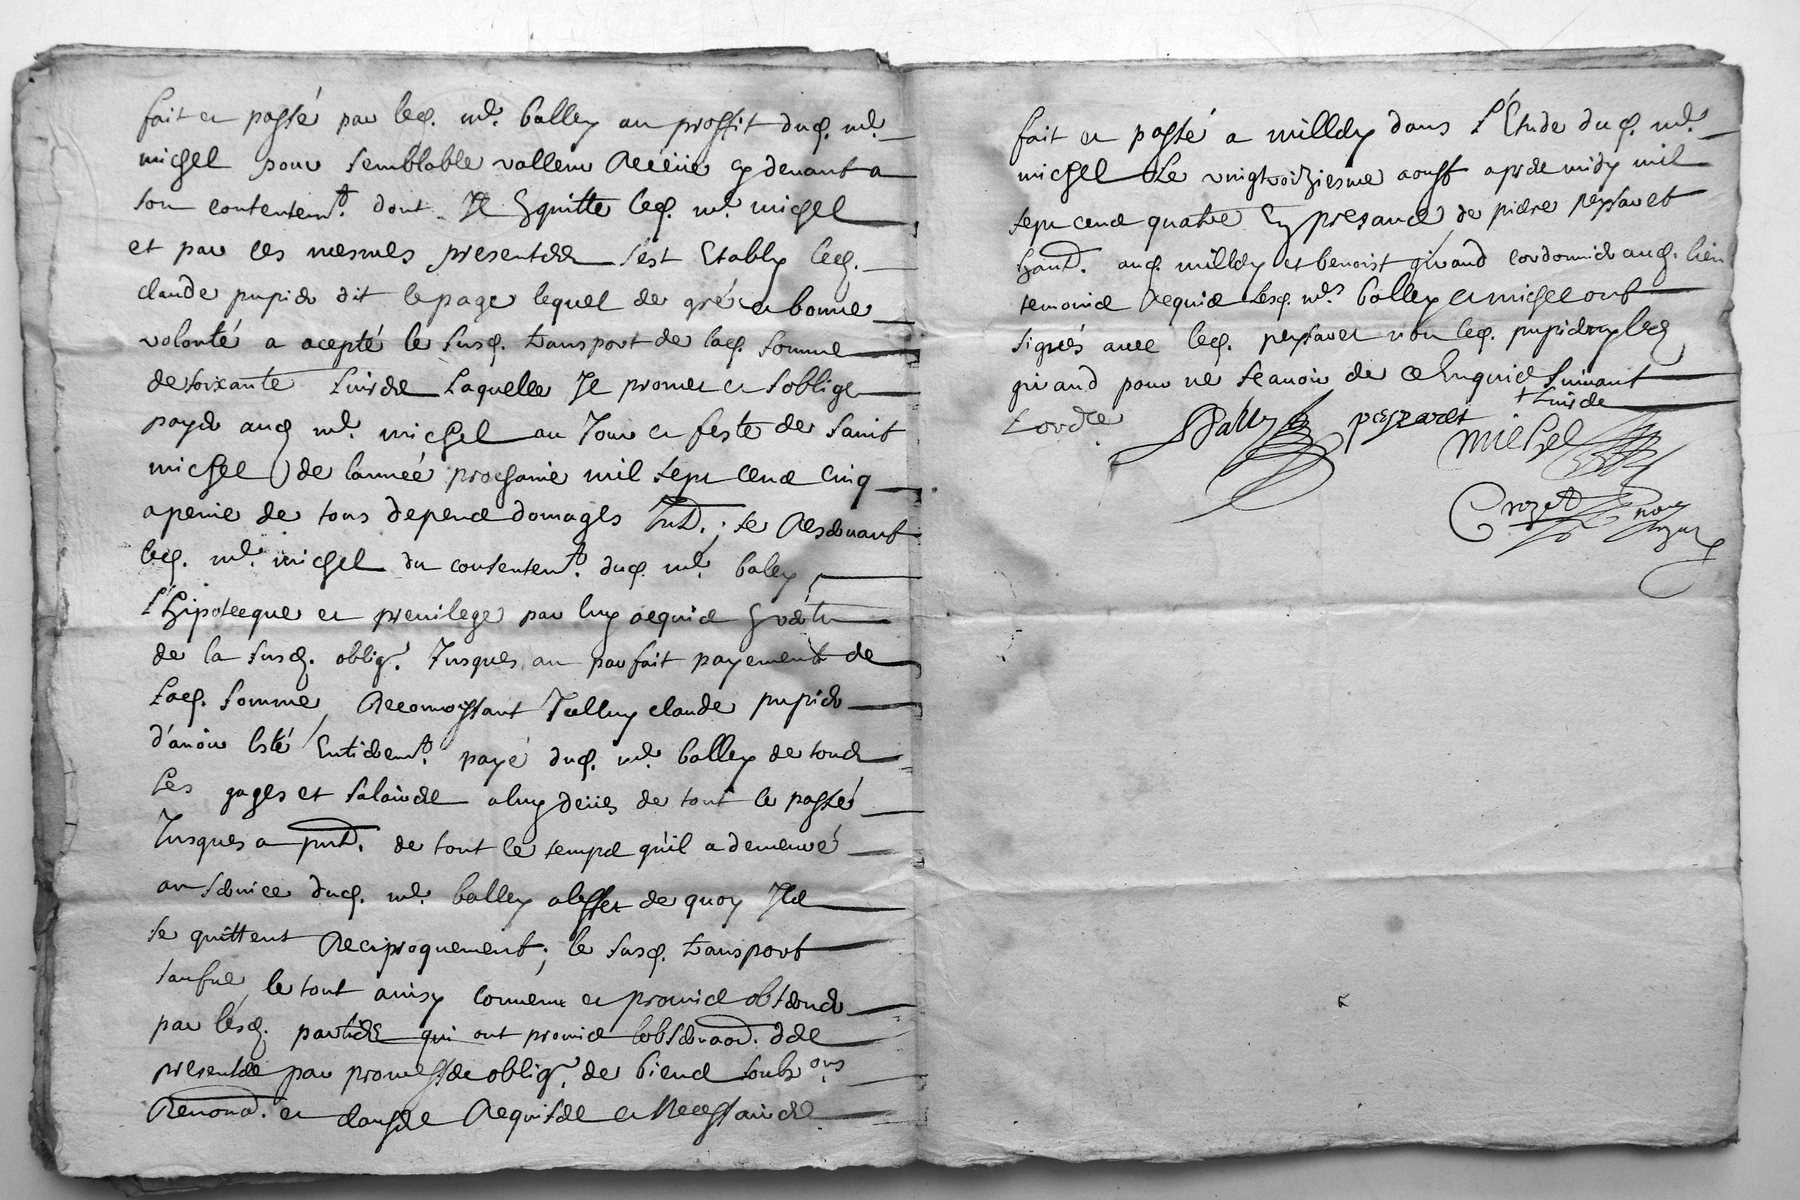 fait et passé par led. mre. balley au proffit dud. mre.
michel pour semblable valleur receüe cy devant a
son contentemt. dont Il Equitte led. mre. michel
et par ces mesmes presentes s'est Etably led.
claude pupier dit lepage lequel de gré et bonne
volonté a acepté le susd. transport de lad. somme
de soixante livres Laquelle Il promet et s'oblige
payer aud mre. michel au Jour et feste de saint
michel de l'année prochaine mil sept cens cinq
a peine de tous depens domages Intd. ; se reservant
led. mre. michel du consentemt. dud. mre. baley
L'hipotecque et privilege par luy acquis
de la susd. oblig. Jusques au parfait payement de
Lad. somme, reconnoissant Icelluy claude pupier
d'avoir Esté Entieremt. payé dud. mre. balley de tous
Les gages et salaires a luy deües de tout le passé
Jusques a pnt. de tout le temps qu'il a demeuré
au service dud. mre. balley a l'effet de quoy Ils
se quittent reciproquement ; le susd. transport
le tout ainsy convenu et promis observer
par lesd. parties qui ont promis l'observaon. des
presentes par promesse oblig. de biens soubons
renond. et clauses requises et Necessaires
fait et passé a milley dans L'Etude dud. mre.
michel Le vingtroiziesme aoust apres midy mil
sept cens quatre En presance de pierre peysaret
hant. aud. milley et benoist giraud cordonnier aud. lieu
temoins requis Lesd. mrs. balley et michel ont
signés avec led. peysaret non led. pupier ny led
giraud pour ne sçavoir de ce Enquis suivant
+ Livres
Lordre Bally peyzaret michel
Crozet nore